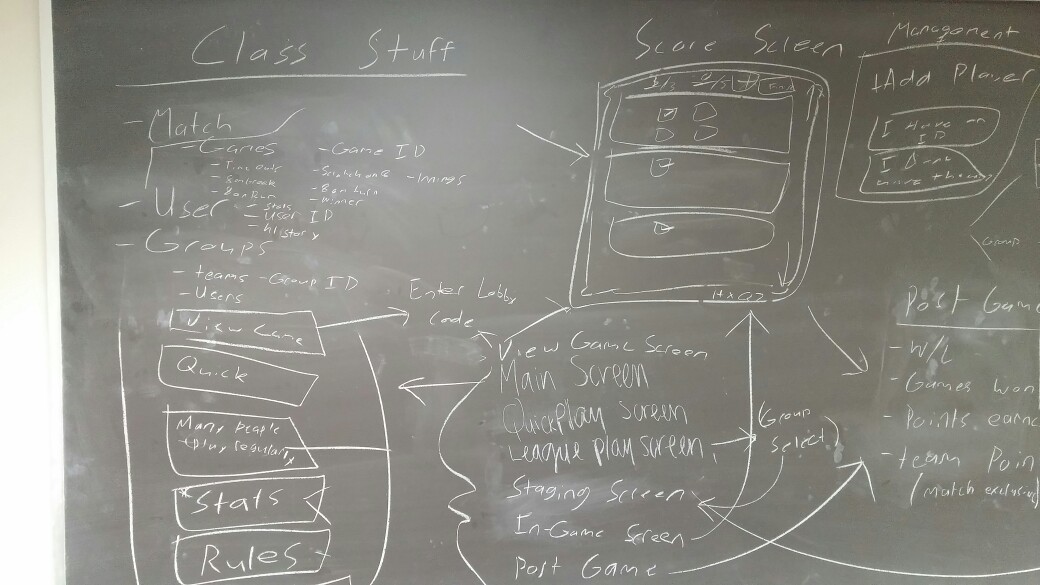 Class Stuff
- Match
- Games
- Time outs
- 8 on Run
- Game ID
- 8 on turn
- Winner
- Innings
- User
- Stats
- User ID
- History
- Groups
- teams
- Group ID
- Users
View Game
Quick
Many people
play regularly
*Stats
Rules
Enter Lobby
Code
View Game Screen
Main Screen
QuickPlay Screen
League play screen
Staging Screen
In-Game Screen
Post Game
(Group
select)
Score Screen
End
Management
+Add Player
I Have an
ID
I Don't
Group
Post Game
- W/L
- Games won
- Points earn
- team Poin
(Match exclusive